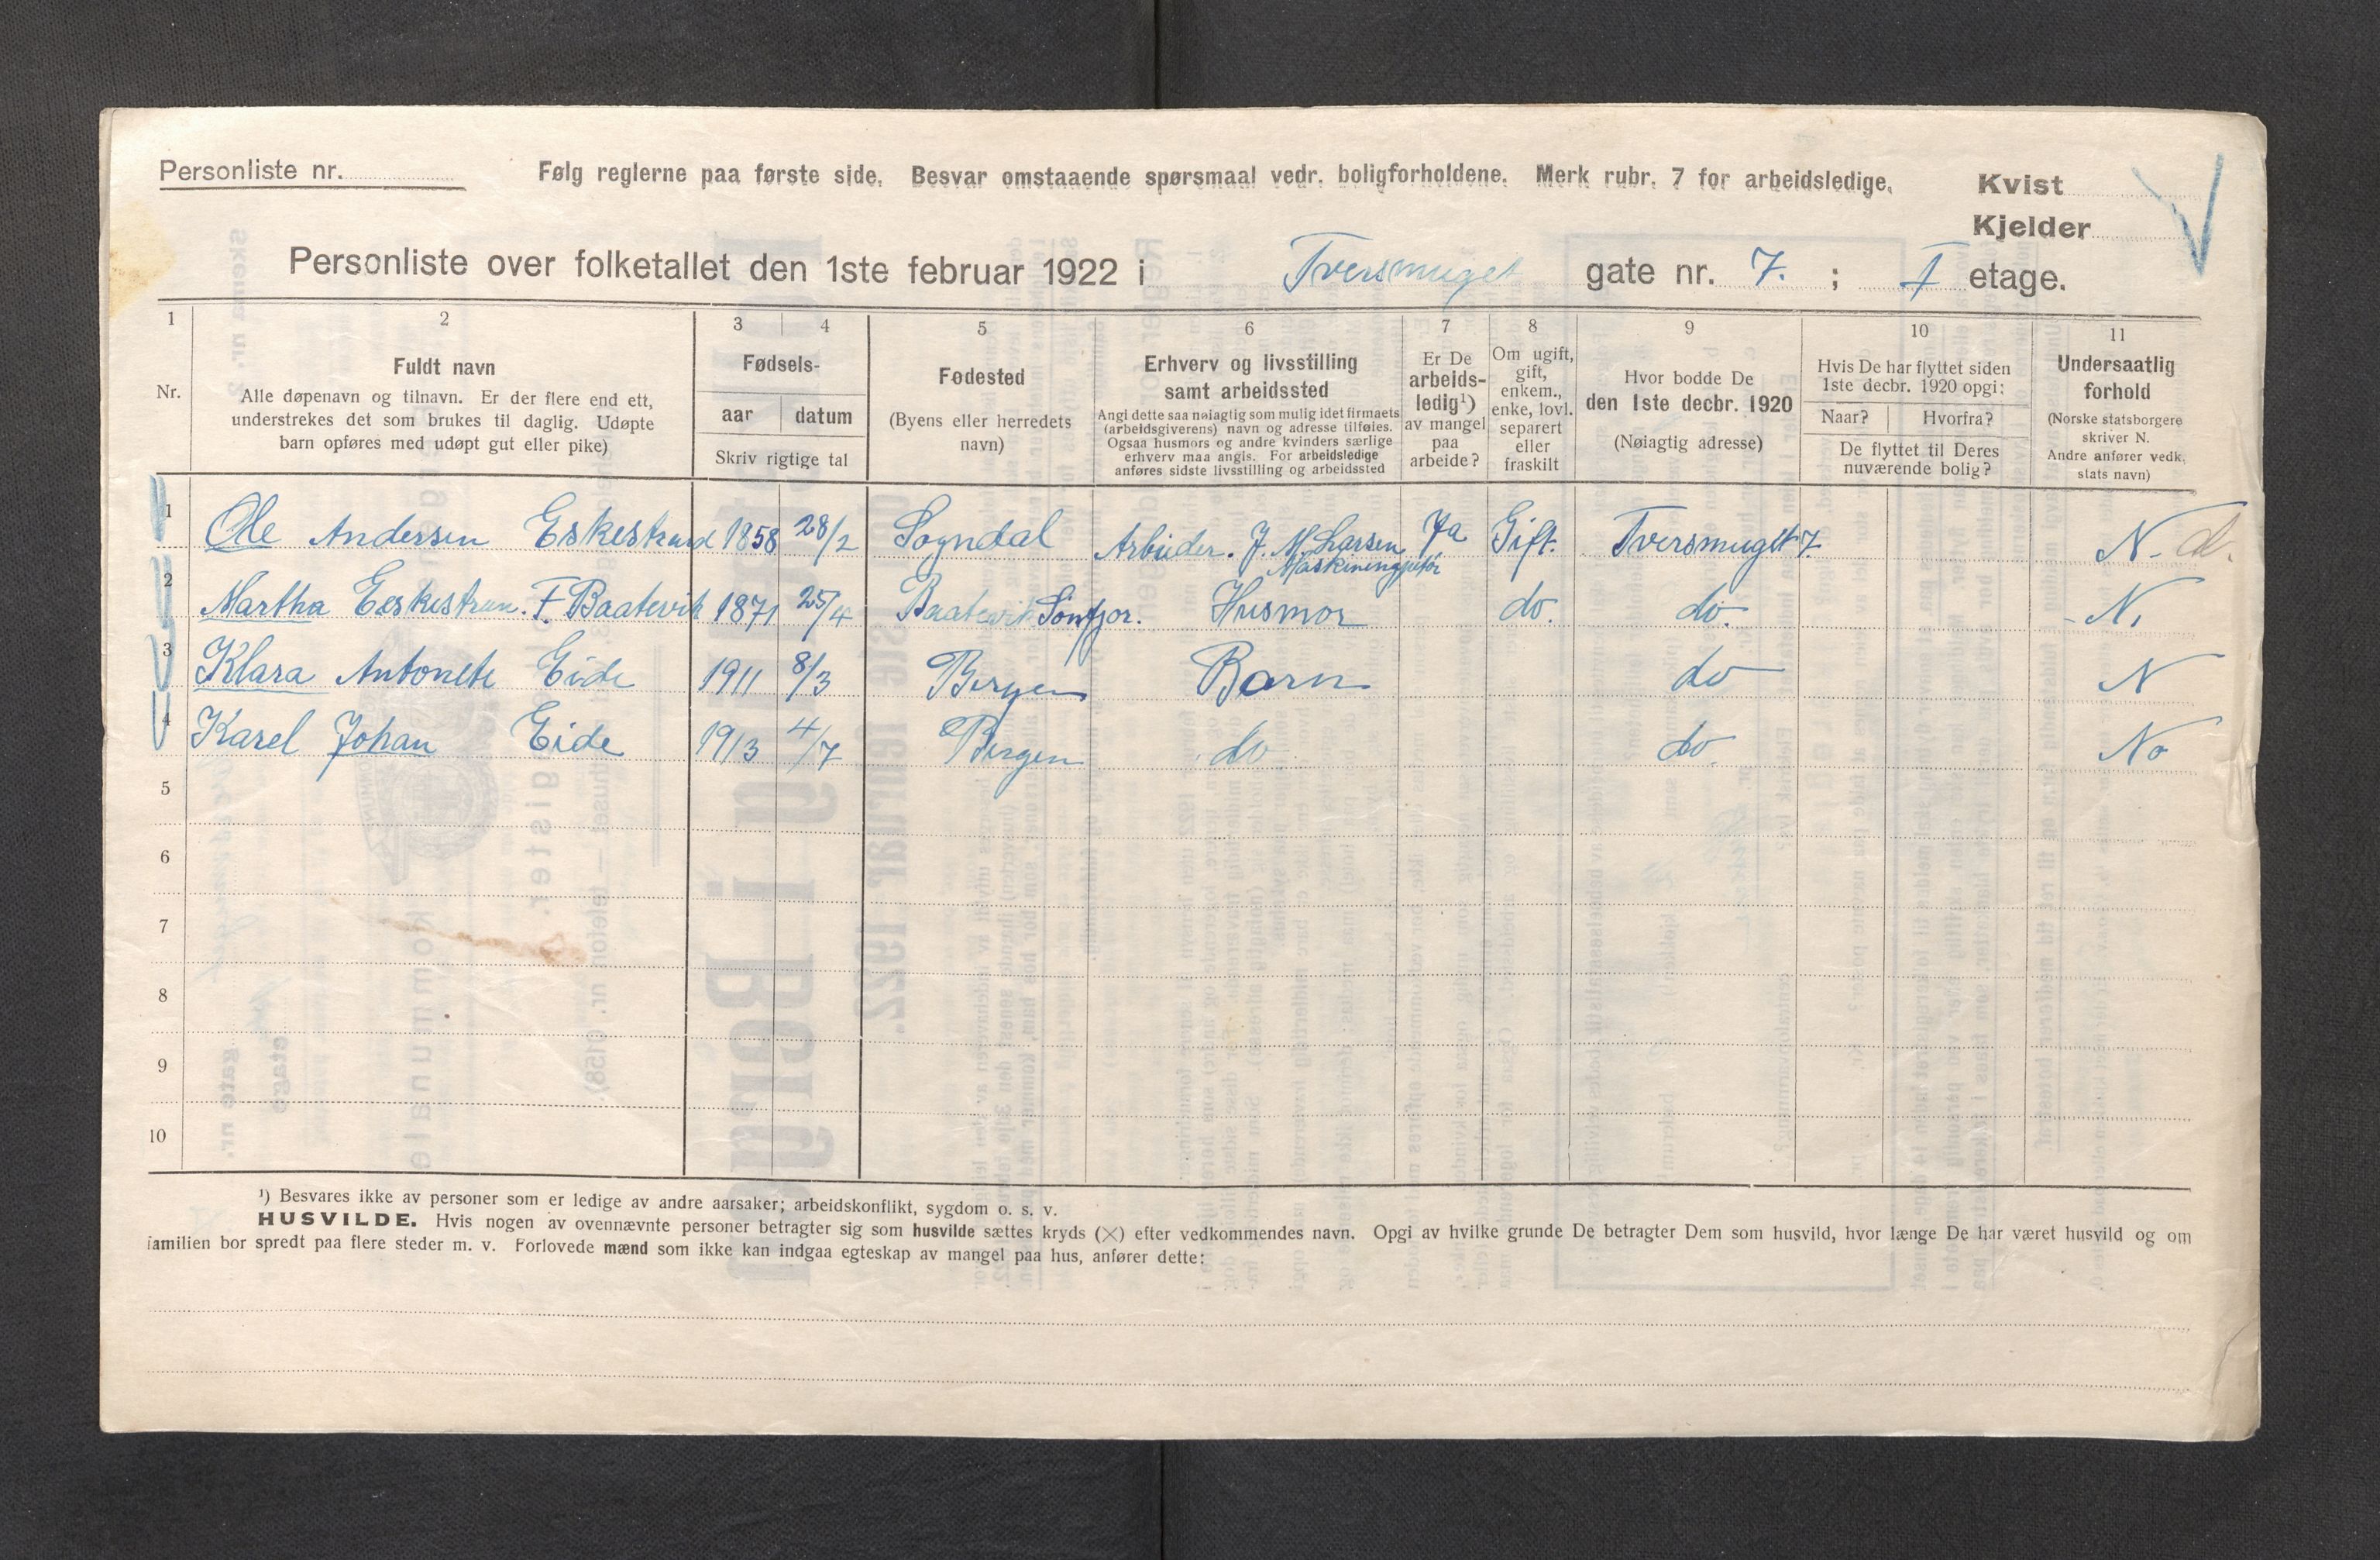 Personliste nr.
Følg reglerne paa første side. Besvar omstaaende spørsmaal vedr. boligforholdene. Merk rubr. 7 for arbeidsledige.
Kvist
Kjelder
Personliste over folketallet den 1ste februar 1922 i Tversmuget gate nr. 7. ; I etage.
1 2 3 4 5 6 7 8 9 10 11
Nr.
Fuldt navn
Alle døpenavn og tilnavn. Er der flere end ett,
understrekes det som brukes til daglig. Udøpte
barn opføres med udøpt gut eller pike)
Fødsels-
aar datum
Skriv rigtige tal
Fødested
(Byens eller herredets
navn)
Erhverv og livsstilling
samt arbeidssted
Angi dette saa nøiagtig som mulig idet firmaets
(arbeidsgiverens) navn og adresse tilføies.
Ogsaa husmors og andre kvinders særlige
erhverv maa angis. For arbeidsledige
anføres sidste livsstilling og arbeidssted
Er De
arbeids-
ledig¹)
av mangel
paa
arbeide?
Om ugift,
gift,
enkem.,
enke, lovl.
separert
eller
fraskilt
Hvor bodde De
den 1ste decbr. 1920
(Nøiagtig adresse)
Hvis De har flyttet siden
1ste decbr. 1920 opgi:
Naar? Hvorfra?
De flyttet til Deres
nuværende bolig?
Undersaatlig
forhold
(Norske statsborgere
skriver N.
Andre anfører vedk.
stats navn)
1 Ole Andersen Eskestrand 1858 28/2 Sogndal Arbeider. J. M. Larsen Ja Gift. Tversmuget 7. N. d.
2 Martha Eeskestran. F. Baatevik 1871 25/4 Baatevik Søndfjor. Husmor do. do. N.
3 Klara Antonete Eide 1911 8/3 Bergen Barn do N
4 Karel Johan Eide 1913 4/7 Bergen do do. No
5
6
7
8
9
10
¹) Besvares ikke av personer som er ledige av andre aarsaker; arbeidskonflikt, sygdom o. s. v.
HUSVILDE. Hvis nogen av ovennævnte personer betragter sig som husvilde sættes kryds (X) efter vedkommendes navn. Opgi av hvilke grunde De betragter Dem som husvild, hvor længe De har været husvild og om
familien bor spredt paa flere steder m. v. Forlovede mænd som ikke kan indgaa egteskap av mangel paa hus, anfører dette: